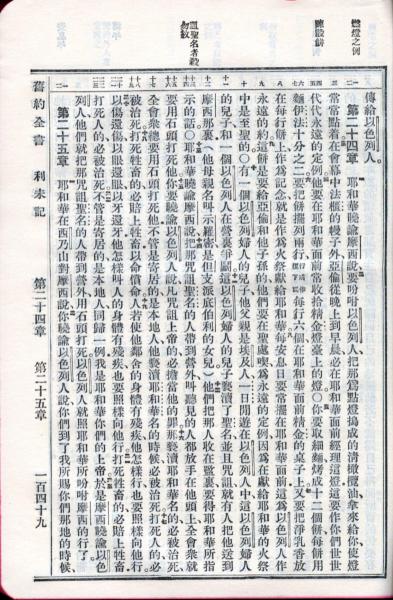 燃燈之例
陳設餅
詛聖名者殺
勿赦
傳給以色列人。
第二十四章 耶和華曉諭摩西說要吩咐以色列人把那為點燈搗成的清橄欖油拿來給你使燈
常常點着在會幕中法櫃的幔子外亞倫從晚上到早晨必在耶和華面前經理這燈這要作你們世世
代代永遠的定例他要在耶和華面前常收拾精金燈臺上的燈○你要取細麵烤成十二個餅每餅用
麵伊法十分之二要把餅擺列兩行每行六個在耶和華面前精金的桌子上又要把淨乳香放
在每行餅上作為記念就是作為火祭獻給耶和華每安息日要常擺在耶和華面前這為以色列人作
永遠的約這餅是要給亞倫和他子孫的他們要在聖處喫為永遠的定例因為在獻給耶和華的火祭
中是至聖的○有一個以色列婦人的兒子他父親是埃及人一日閒遊在以色列人中這以色列婦人
的兒子和一個以色列人在營裏爭鬬這以色列婦人的兒子褻瀆了聖名並且咒詛就有人把他送到
摩西那裏(他母親名叫示羅密是但支派底伯利的女兒)他們把那人收在監裏要得耶和華所指
示的話○耶和華曉諭摩西說把那咒詛聖名的人帶到營外叫聽見的人都放手在他頭上全會衆就
要用石頭打死他你要曉諭以色列人說凡咒詛上帝的必擔當他的罪那褻瀆耶和華名的必被治死
全會衆總要用石頭打死他不管是寄居的是本地人他褻瀆耶和華名的時候必被治死打死人的必
被治死打死牲畜的必賠上牲畜以命償命人若使他鄰舍的身體有殘疾他怎樣行也要照樣向他行
以傷還傷以眼還眼以牙還牙他怎樣叫人的身體有殘疾也要照樣向他行打死牲畜的必賠上牲畜
打死人的必被治死不管是寄居的是本地人同歸一例我是耶和華你們的上帝於是摩西曉諭以色
列人他們就把那咒詛聖名的人帶到營外用石頭打死以色列人就照耶和華所吩咐摩西的行了。
第二十五章 耶和華在西乃山對摩西說你曉諭以色列人說你們到了我所賜你們那地的時候
舊約全書 利未記 第二十四章 第二十五章 一百四十九